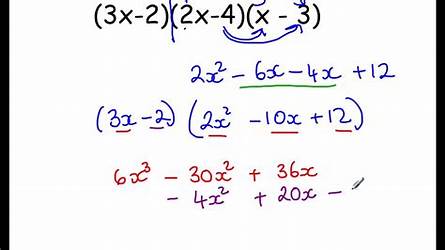 (3x-2)(2x-4)(x - 3)
2x² - 6x - 4x + 12
(3x - 2) (2x² - 10x + 12)
6x³ - 30x² + 36x
- 4x² + 20x -